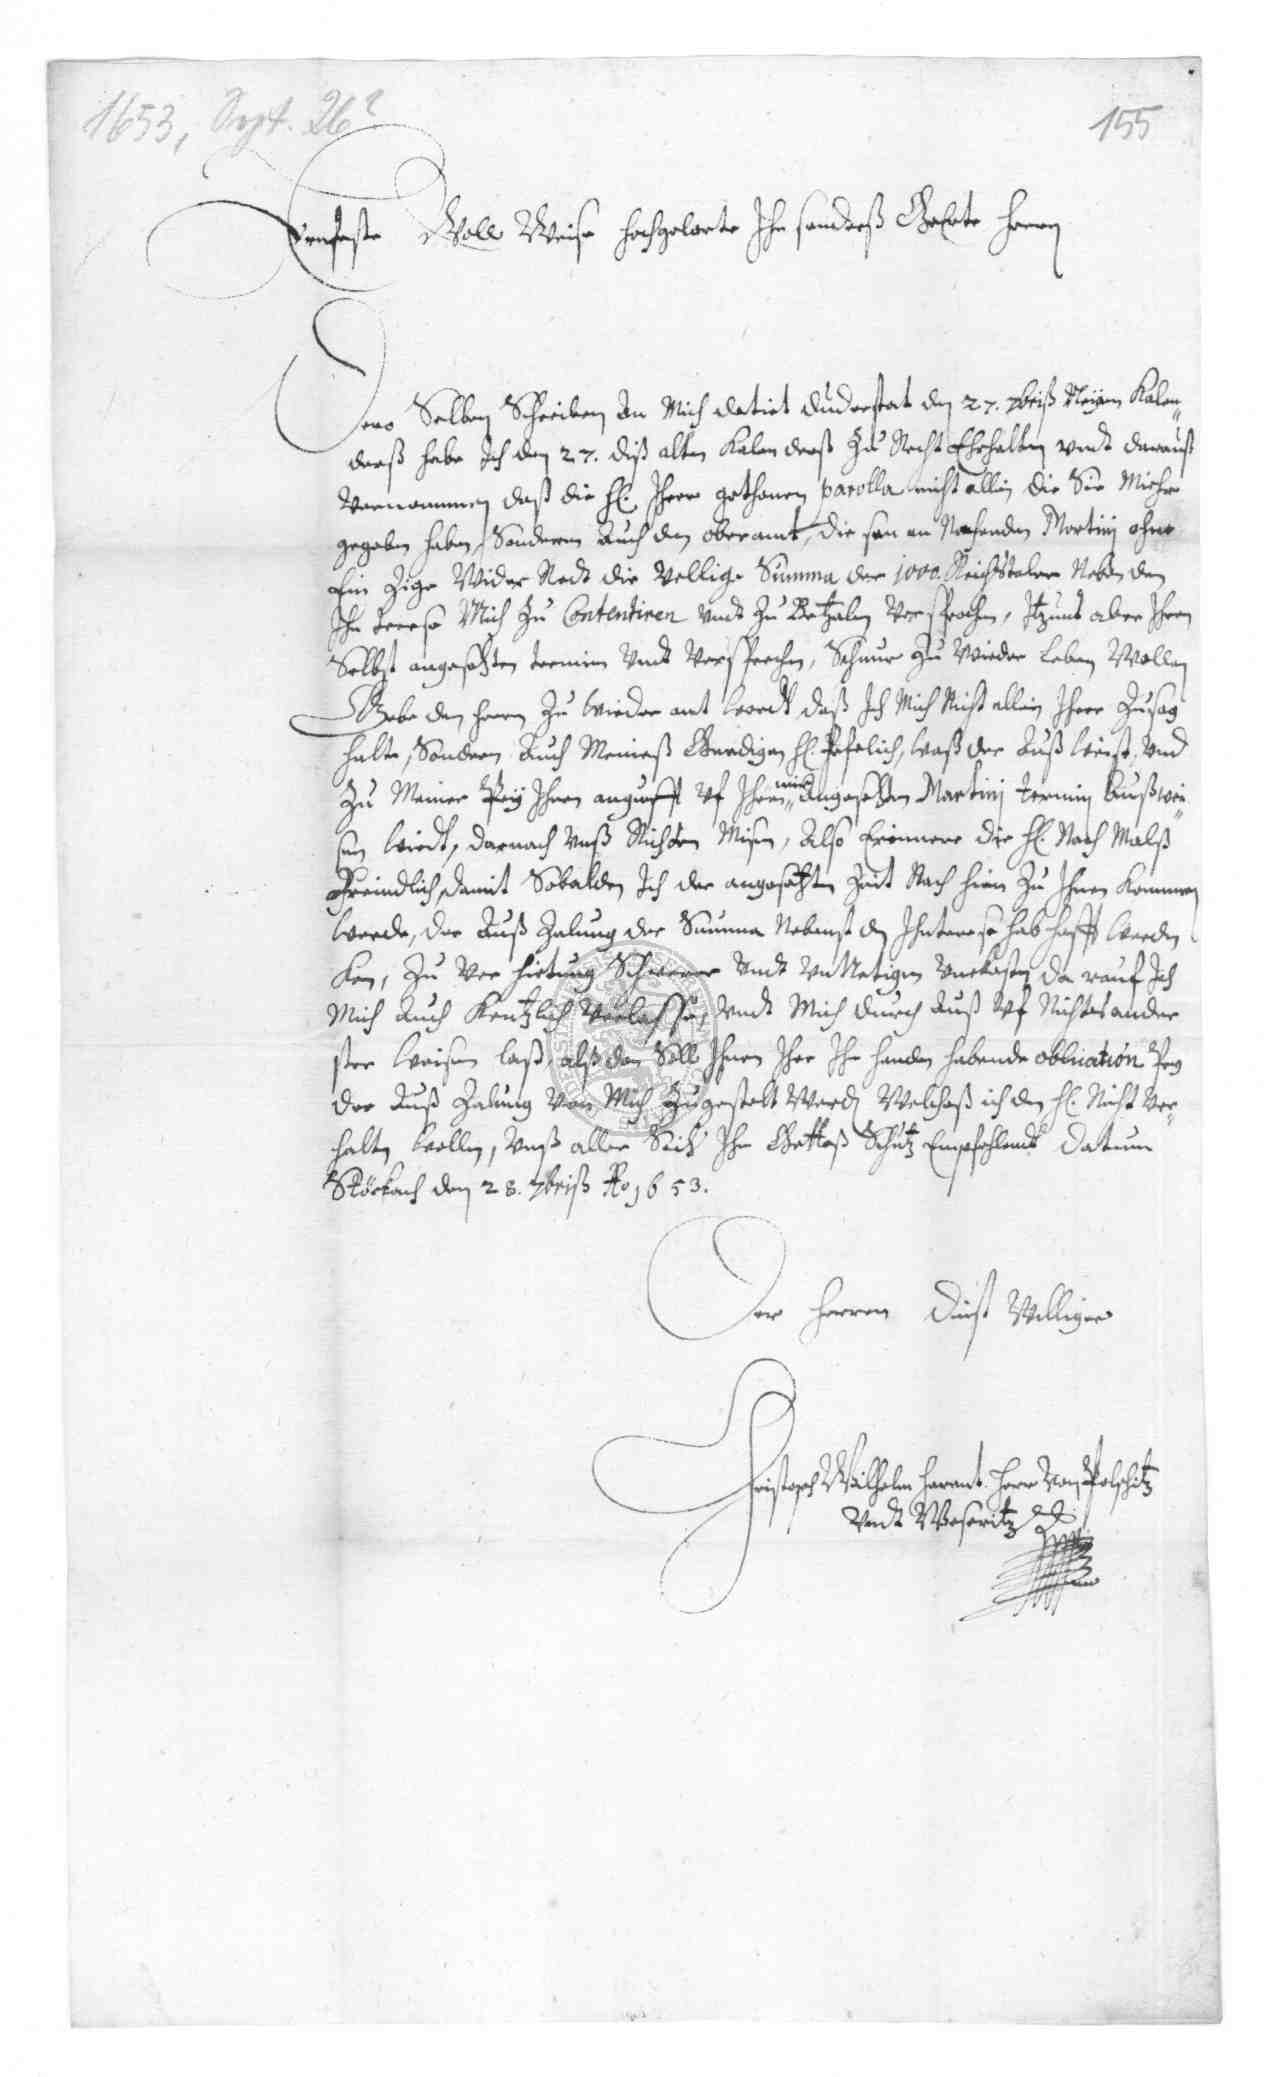 1653, Sept. 26?
155
Ernfeste Woll Weise hochgelarte Ihn sonderß Geherte herren
Dero Selben Schreiben An Mich datirt Duderstat den 27. 7briß Neyen Kalen„
derß habe Ich den 27. diß alten Kalenderß Zu Recht Ehrhalten undt darauß
Vornommen daß die H. Ihrer gethanen parolla nicht allein die Sie Miehr
gegeben haben, Sonderen Auch den oberamt, die sen an Martinj ohne
Ein Zige Wider Redt die Vellige Summa der 1000. Reichstaler Neben den
Ihn terese Mich Zu Contentiren undt Zu Betzalen Versprochen, Itzunt aber Ihren
Selbst angesetzten termin undt Versprechen, Schnur Zu Wieder Leben Wollen
Gebe den herren Zu Wieder ant Wordt, daß Ich Mich Nicht allein Ihrer Zusag
halte, Sondern Auch Meineß Gnedigen H. waß der Auß Weist, Und
Zu Meiner Pey Ihnen angunfft Uf Ihren mir angesetzten Martinj termin Außwei„
sen Wirdt, darnach Unß Richten Misen, Also Erinnere die H. Nach Malß
Freindlich, damit Sobalden Ich der angesetzten Zeit Nach hien Zu Ihnen Kommen
Werde, der Auß Zalung der Summa Nebenst den Ihnterese habhafft Werden
Ken, Zu Ver hietung Schwerer Undt Unnetigen Unkosten, da rauf Ich
Mich Auch Kentzlich Verlasse, Undt Mich durch Auß Uf Nichtes ander
ster Weisen laß, alß dan Soll Ihnen Iher Ihn handen habende obligation Pey
der Auß Zalung Von Mich Zugestelt Werden Welcheß ich den H. Nicht Ver„
halten Wellen, Unß aller Seitz Ihn Gotteß Schutz Empfehlendt Datum
Störkach den 28. 7briß Ao 1653.
Der Herren Dinst Williger
Christoph Wilhelm Harant Herr Von Polschitz
Undt Weseritz